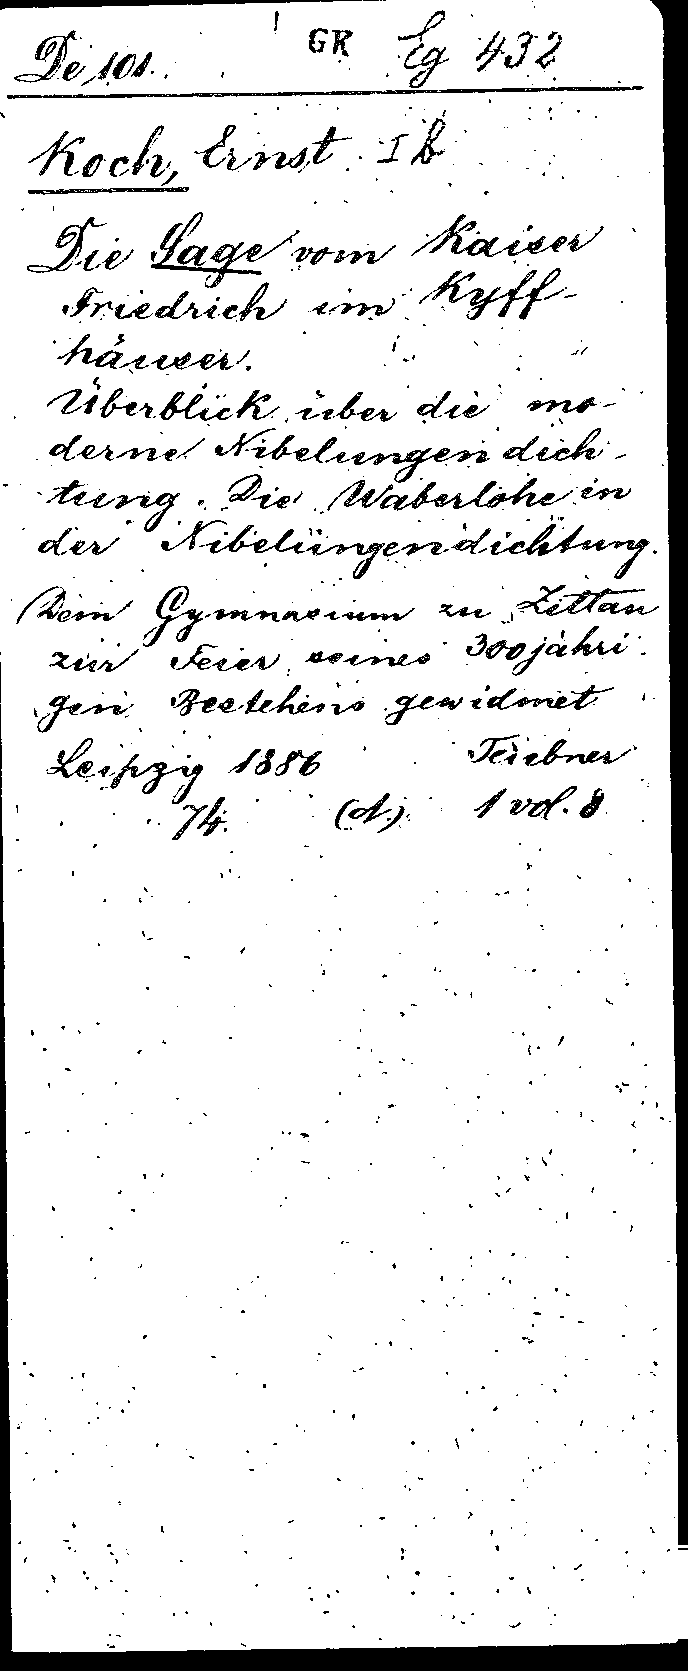 De 101. GR Eg 432
Koch, Ernst I b
Die Sage vom Kaiser
Friedrich im Kyff-
häuser.
Überblick über die mo-
derne Nibelungendich-
tung. Die Waberlohe in
der Nibelungendichtung.
Dem Gymnasium zu Zittau
zur Feier seines 300jähri
gen Bestehens gewidmet
Leipzig 1886 Teubner
74. (A.) 1 vol. 8